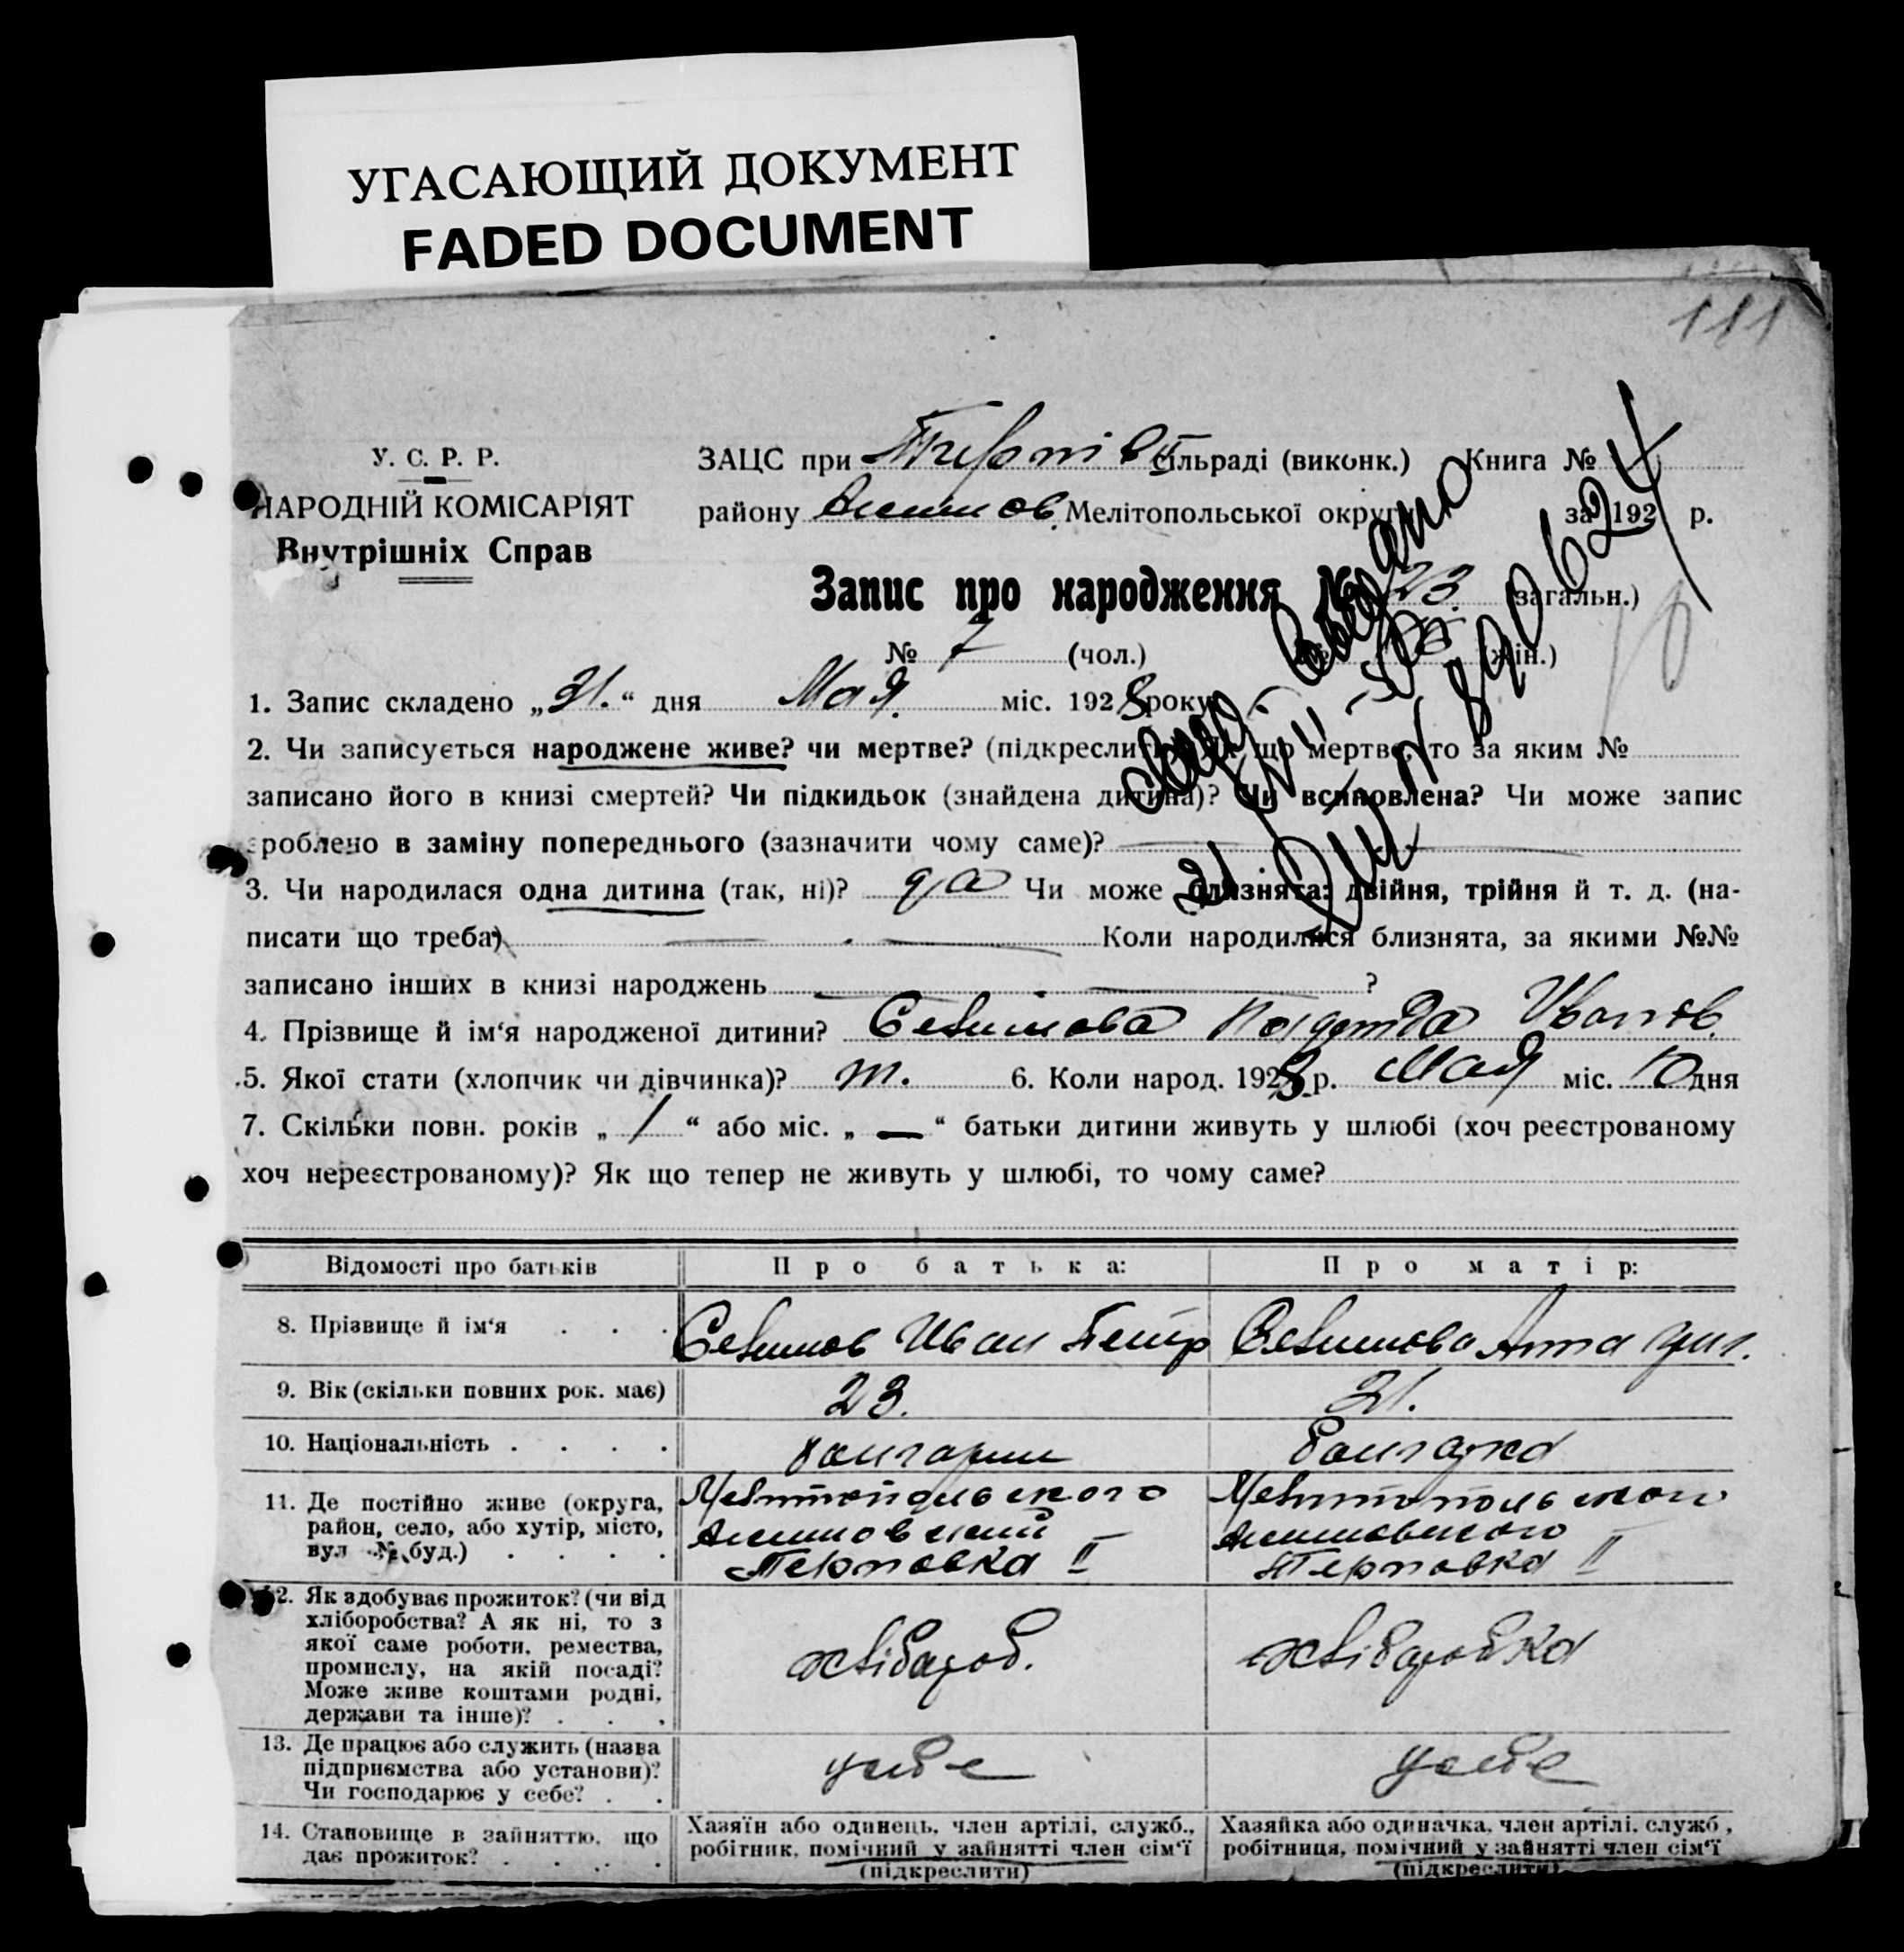 УГАСАЮЩИЙ ДОКУМЕНТ
FADED DOCUMENT
111
У. С. Р. Р.
НАРОДНІЙ КОМІСАРІЯТ
Внутрішніх Справ
ЗАЦС при сільраді (виконк.) Книга №
району Акимов. Мелітопольської округи за 192 р.
Запис про народження № 23. (загальн.)
№ 7 (чол.) (жін.)
1. Запис складено „31.“ дня Мая. міс. 1928 року
2. Чи записується народжене живе? чи мертве? (підкреслити) Як що мертве, то за яким №
записано його в книзі смертей? Чи підкидьок (знайдена дитина)? Чи всиновлена? Чи може запис
зроблено в заміну попереднього (зазначити чому саме)?
3. Чи народилася одна дитина (так, ні)? да Чи може близнята: двійня, трійня й т. д. (на-
писати що треба) Коли народилися близнята, за якими №№
записано інших в книзі народжень ?
4. Прізвище й ім‘я народженої дитини? Иванов.
5. Якої стати (хлопчик чи дівчинка)? 6. Коли народ. 1928 р. Мая міс. 10 дня
7. Скільки повн. років „ 1 “ або міс. „ — “ батьки дитини живуть у шлюбі (хоч реєстрованому
хоч нереєстрованому)? Як що тепер не живуть у шлюбі, то чому саме?
Відомості про батьків Про батька: Про матір:
8. Прізвище й ім‘я . . . Иван Петр Анна Григ.
9. Вік (скільки повних рок. має) 23. 21.
10. Національність . . . . болгарин болгарка
11. Де постійно живе (округа, район, село, або хутір, місто, вул. № буд.) . . . .
Мелитопольского Мелитопольского
Акимовский Акимовского
Терновка II Терновка II
12. Як здобуває прожиток? (чи від
хліборобства? А як ні, то з
якої саме роботи, ремества,
промислу, на якій посаді?
Може живе коштами родні,
держави та інше)? . . .
хлібароб. хлібаробка
13. Де працює або служить (назва
підприємства або установи)?
Чи господарює у себе? . .
усебе усебе
14. Становище в зайняттю, що
дає прожиток? . . . .
Хазяїн або одинець, член артілі, служб.,
робітник, помічний у зайнятті член сім‘ї
(підкреслити)
Хазяйка або одиначка, член артілі, служб.,
робітниця, помічний у зайнятті член сім‘ї
(підкреслити)